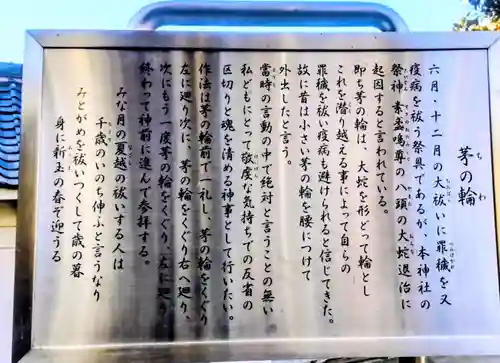 茅の輪
六月・十二月の大祓いに罪穢を又
疫病を祓う祭具であるが、本神社の
祭神 素盞嗚尊の八頭の大蛇退治に
起因すると言われている。
即ち茅の輪は、大蛇を形どって輪とし
これを潜り越える事によって自らの
罪穢を祓い疫病も避けられると信じてきた。
故に昔は小さい茅の輪を腰につけて
外出したと言う。
当時の言動の中で絶対と言うことの無い
私どもにとって敬虔な気持ちでの反省の
区切りと魂を清める神事として行いたい。
作法は茅の輪前で一礼し、茅の輪をくぐり
左に廻り次に、茅の輪をくぐり右へ廻り、
次にもう一度茅の輪をくぐり、左に廻り、
終わって神前に進んで参拝する。
みな月の夏越の祓いする人は
千歳のいのち伸ふと言うなり
みとがめを祓いつくして歳の暮
身に新玉の春ぞ迎うる